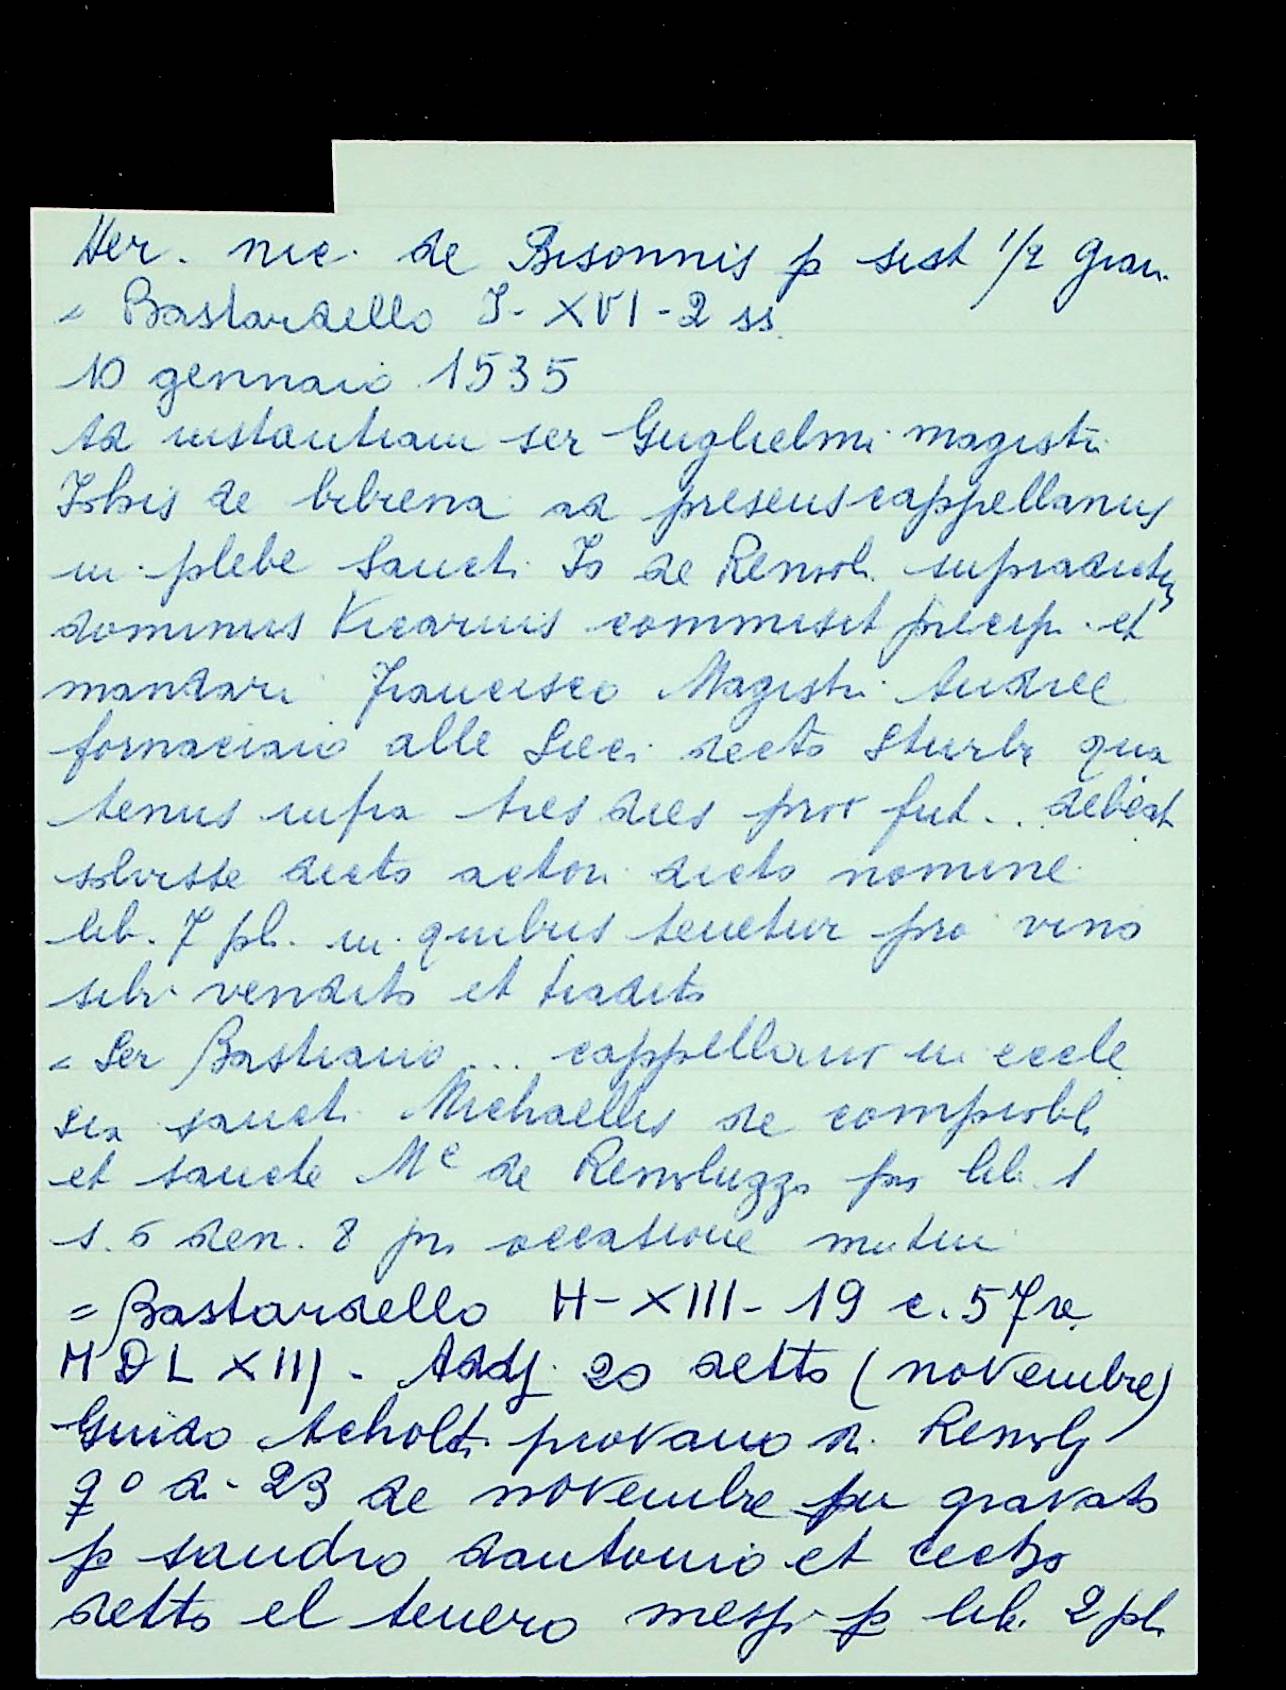 Her. nic. de Bisonnis p sist 1/2 gran.
= Bastardello I - XVI - 2 ss.
10 gennaio 1535
Ad instantiam ser Guglielmi magistri
Iohis de bibiena ad presens cappellanus
in plebe Sancti Io de Remol. supradictus
dominus Vicarius commisit precip. et
mandari Francisco Magistri Andree
fornaciaio alle Sieci decto Sturbi qua
tenus infra tres dies prox fut... debeat
solvisse dicto actori dicto nomine
lib. 7 pl. in quibus tenetur pro vino
sibi vendito et tradito
= Ser Bastiano ... cappellano in eccle
sia sancti Michaellis de compiobbi
et sancte Me de Remoluzzo pro lib. 1
s. 6 den. 8 pro occasione mutui
= Bastardello H - XIII - 19 c. 57 v.
MDLXIIJ - Addj 20 detto (novembre)
Guido Acholti provano di Remolj
qo di 23 de novembre fu gravato
p sandro dantonio et cecho
detto el tenero messi p lib. 2 pl.